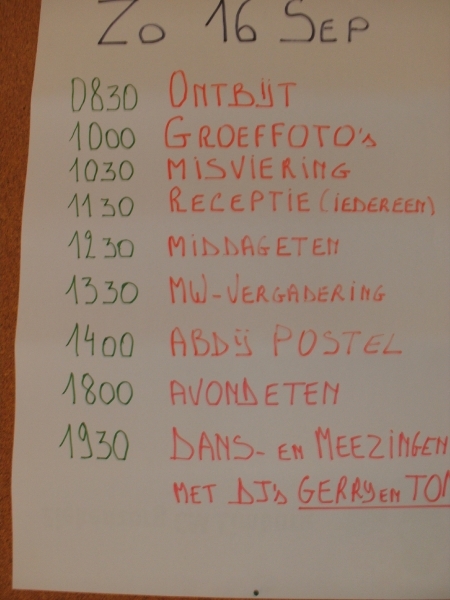 Zo 16 SEP
0830 ONTBIJT
1000 GROEFFOTO'S
1030 MISVIERING
1130 RECEPTIE (IEDEREEN)
1230 MIDDAGETEN
1330 MW-VERGADERING
1400 ABDIJ POSTEL
1800 AVONDETEN
1930 DANS- EN MEEZINGEN
MET DJ'S GERRY EN